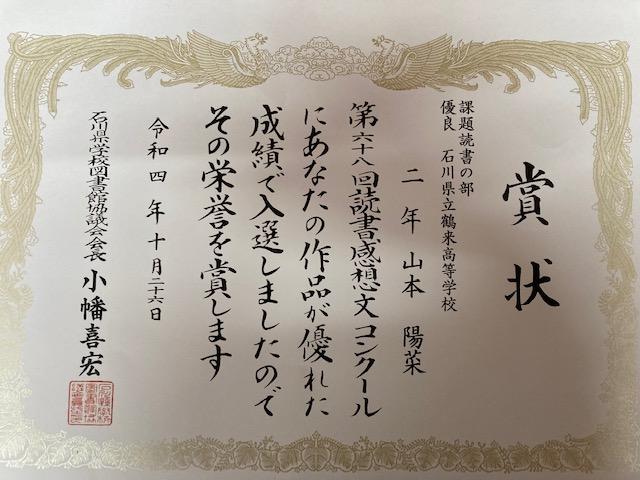 賞状
課題読書の部
優良 石川県立鶴来高等学校
二年 山本 陽菜
第六十八回読書感想文コンクール
にあなたの作品が優れた
成績で入選しましたので
その栄誉を賞します
令和四年十月二十六日
石川県学校図書館協議会会長 小幡喜宏